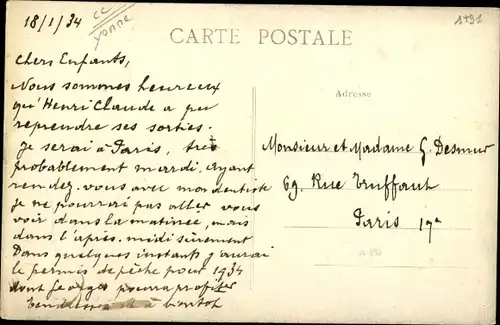 18/1/34
Yonne
CARTE POSTALE
Chers Enfants,
Nous sommes heureux
qu'Henri Claude a pu
reprendre ses sorties.
Je serai à Paris, très
probablement mardi, ayant
rendez-vous avec mon dentiste
je ne pourrai pas aller vous
voir dans la matinée, mais
dans l'après-midi sûrement
Dans quelques instants j'aurai
le permis de pêche pour 1934
dont Georges pourra profiter
Tendresses à bientôt
Adresse
Monsieur et Madame G. Desmur
69, Rue Truffaut
Paris 17e